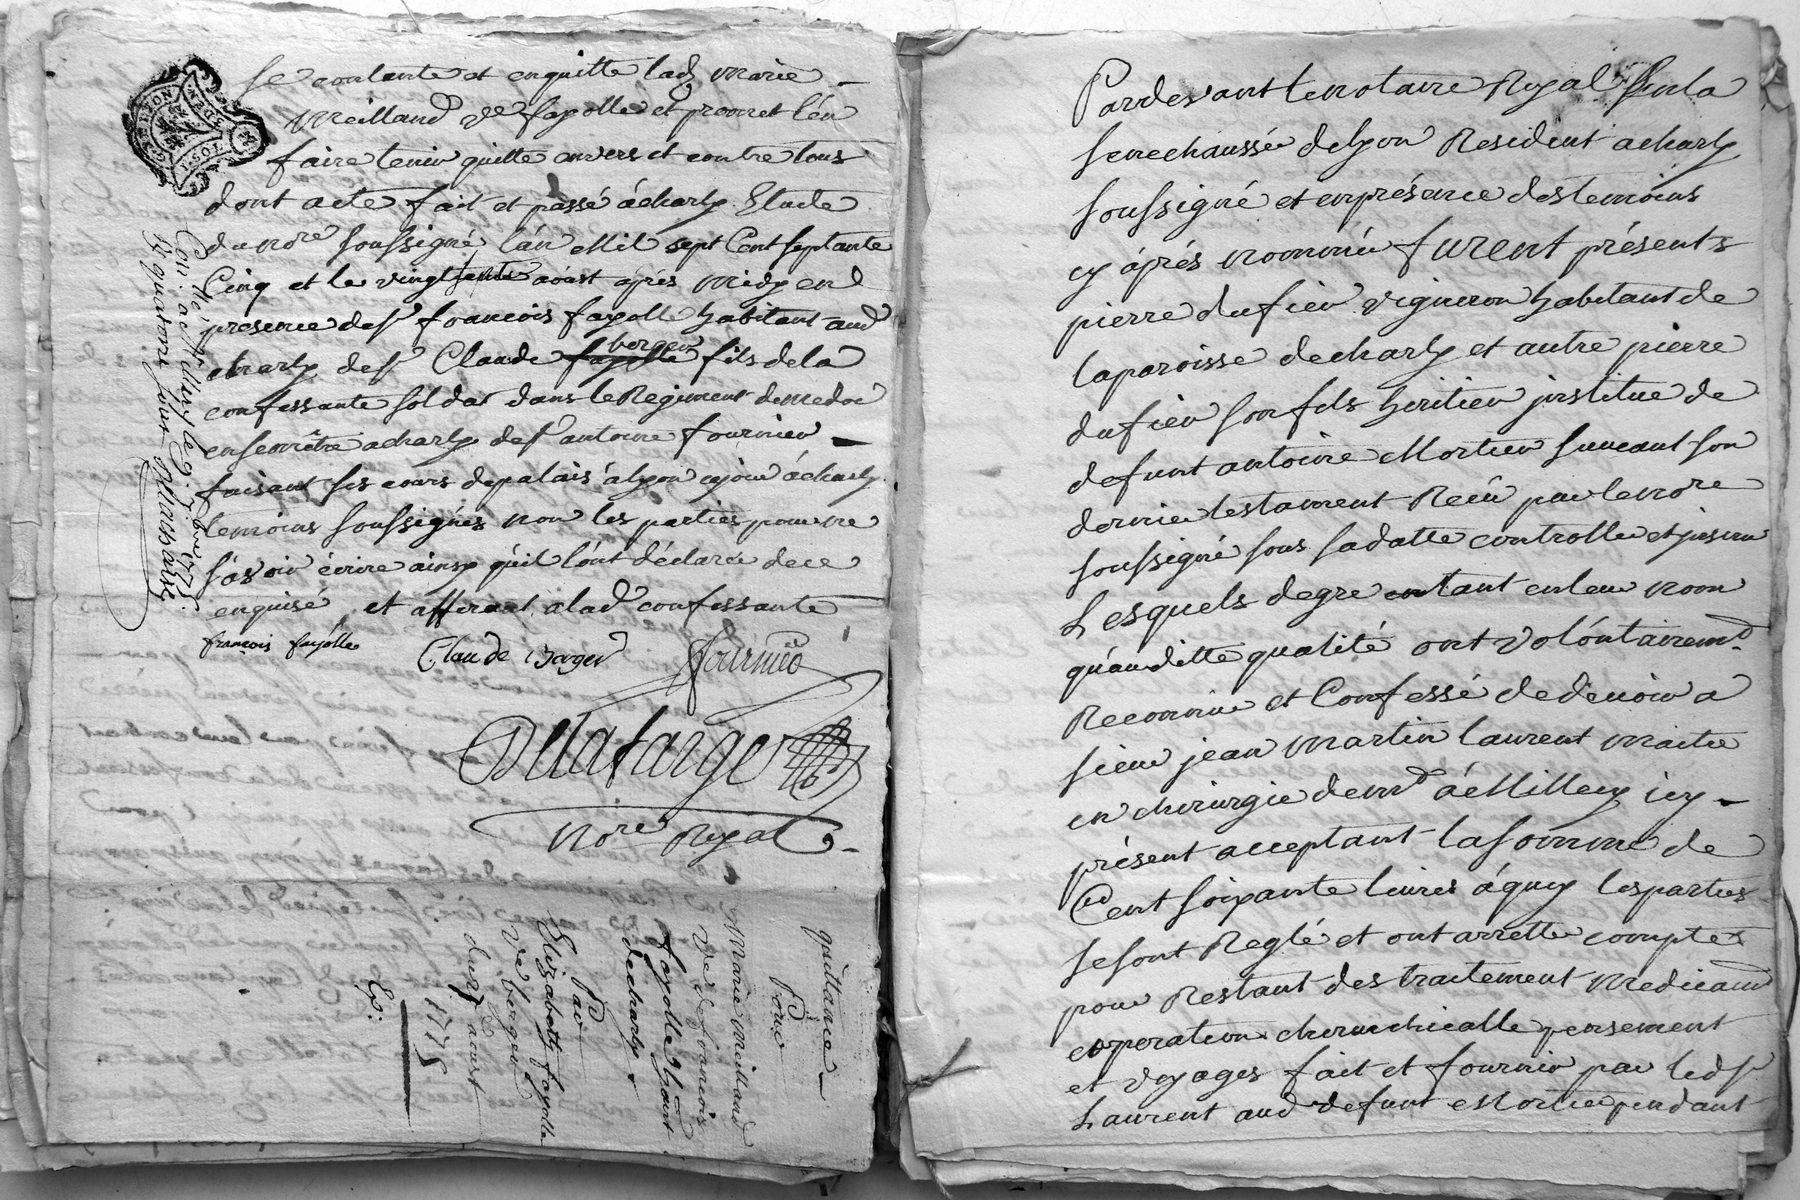 GEN. LYON
se contante et enquitte lad. marie
meilland ve fayolle et promet l'en
faire tenir quitte envers et contre tous
dont acte fait et passé à charly Etude
du nore soussigné l'an Mil sept Cent septante
Cinq et le vingt août après midy en
presence de sr francois fayolle habitant aud
charly de sr Claude berger fils de la
confessante soldat dans le Regiment de medoc
en semêtre a charly de sr antoine fournier
faisant ses cours de palais à lyon ce jour à charly
temoins soussignés non les parties pour ne
sávoir écrire ainsy qu'il l'ont déclaré de ce
enquisé et afferant a lad. confessante
françois fayolle Claude Berger fournier
Delafarge
Nore Royal
Conllé à st Mury le 9e 7bre 1775.
Rt quatorze sous
quittance
Pour
Marie meilland
ve de francois
fayolle habitant
de charly
Par
Elizabeth fayolle
ve berger
du août
1775
Ex:
Pardevant le notaire Royal En la
senechaussée de lyon Resident a charly
soussigné et en présence des temoins
cy après nommés furent présents
pierre dufieu vigneron habitant de
la paroisse de charly et autre pierre
dufieu son fils héritier institue de
defunt antoine Mortier suivant son
dernier testament Reçû par le nore
soussigné sous sa datte controllé et insinué
Lesquels de gre entant en leur nom
qu'au ditte qualité ont volóntairemt.
Reconnu et Confessé de devoir a
sieur jean martin laurent maitre
en chirurgie demt à Millery icy
présent acceptant la somme de
Cent soixante livres à quoy les parties
se sont Reglé et ont arretté comptes
pour Restant des traitement medicamt
operation chirurchicalle pensement
et voyages fait et fournir par led sr
Laurent aud defunt Mortier pendant